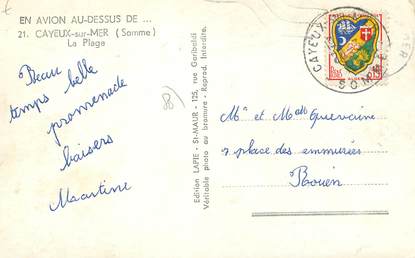 EN AVION AU-DESSUS DE ...
21. CAYEUX-sur-MER (Somme)
La Plage
Beau
temps belle
promenade
baisers
Martine
Edition LAPIE - St-MAUR - 125, rue Garibaldi
Véritable photo au bromure - Reprod. Interdite.
88
CAYEUX
SOMME
Mr et Mme
7 place des emmurées
Rouen